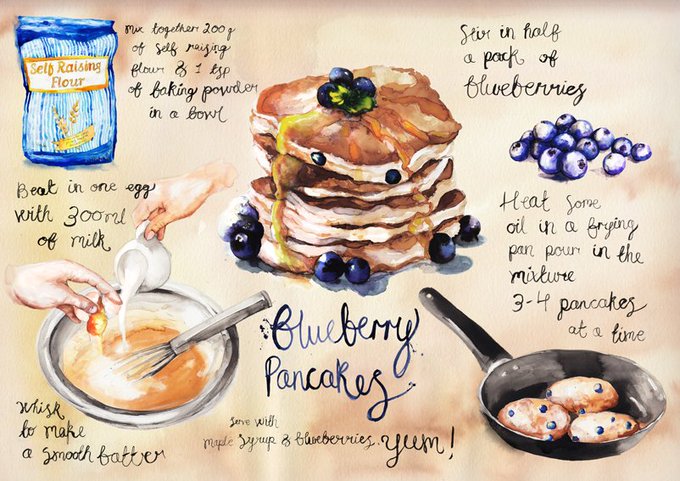 Self Raising
Flour
Mix together 200g
of self raising
flour & 1 tsp
of baking powder
in a bowl
Beat in one egg
with 300ml
of milk
Whisk
to make
a smooth batter
Stir in half
a pack of
blueberries
Heat some
oil in a frying
pan pour in the
mixture
3-4 pancakes
at a time
Blueberry
Pancakes
Serve with
maple syrup & blueberries. Yum!